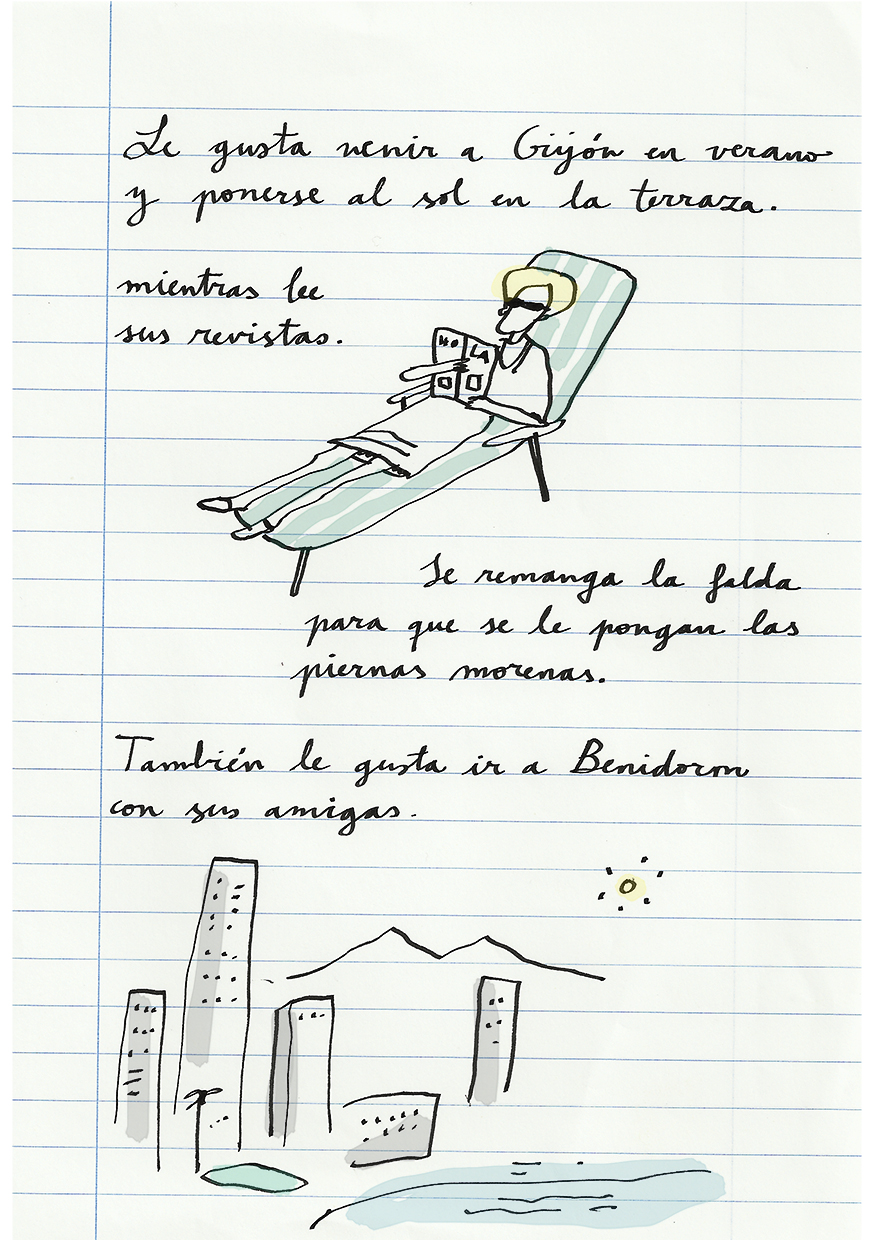 Le gusta venir a Gijón en verano
y ponerse al sol en la terraza.
mientras lee
sus revistas.
HO LA
Se remanga la falda
para que se le pongan las
piernas morenas.
También le gusta ir a Benidorm
con sus amigas.